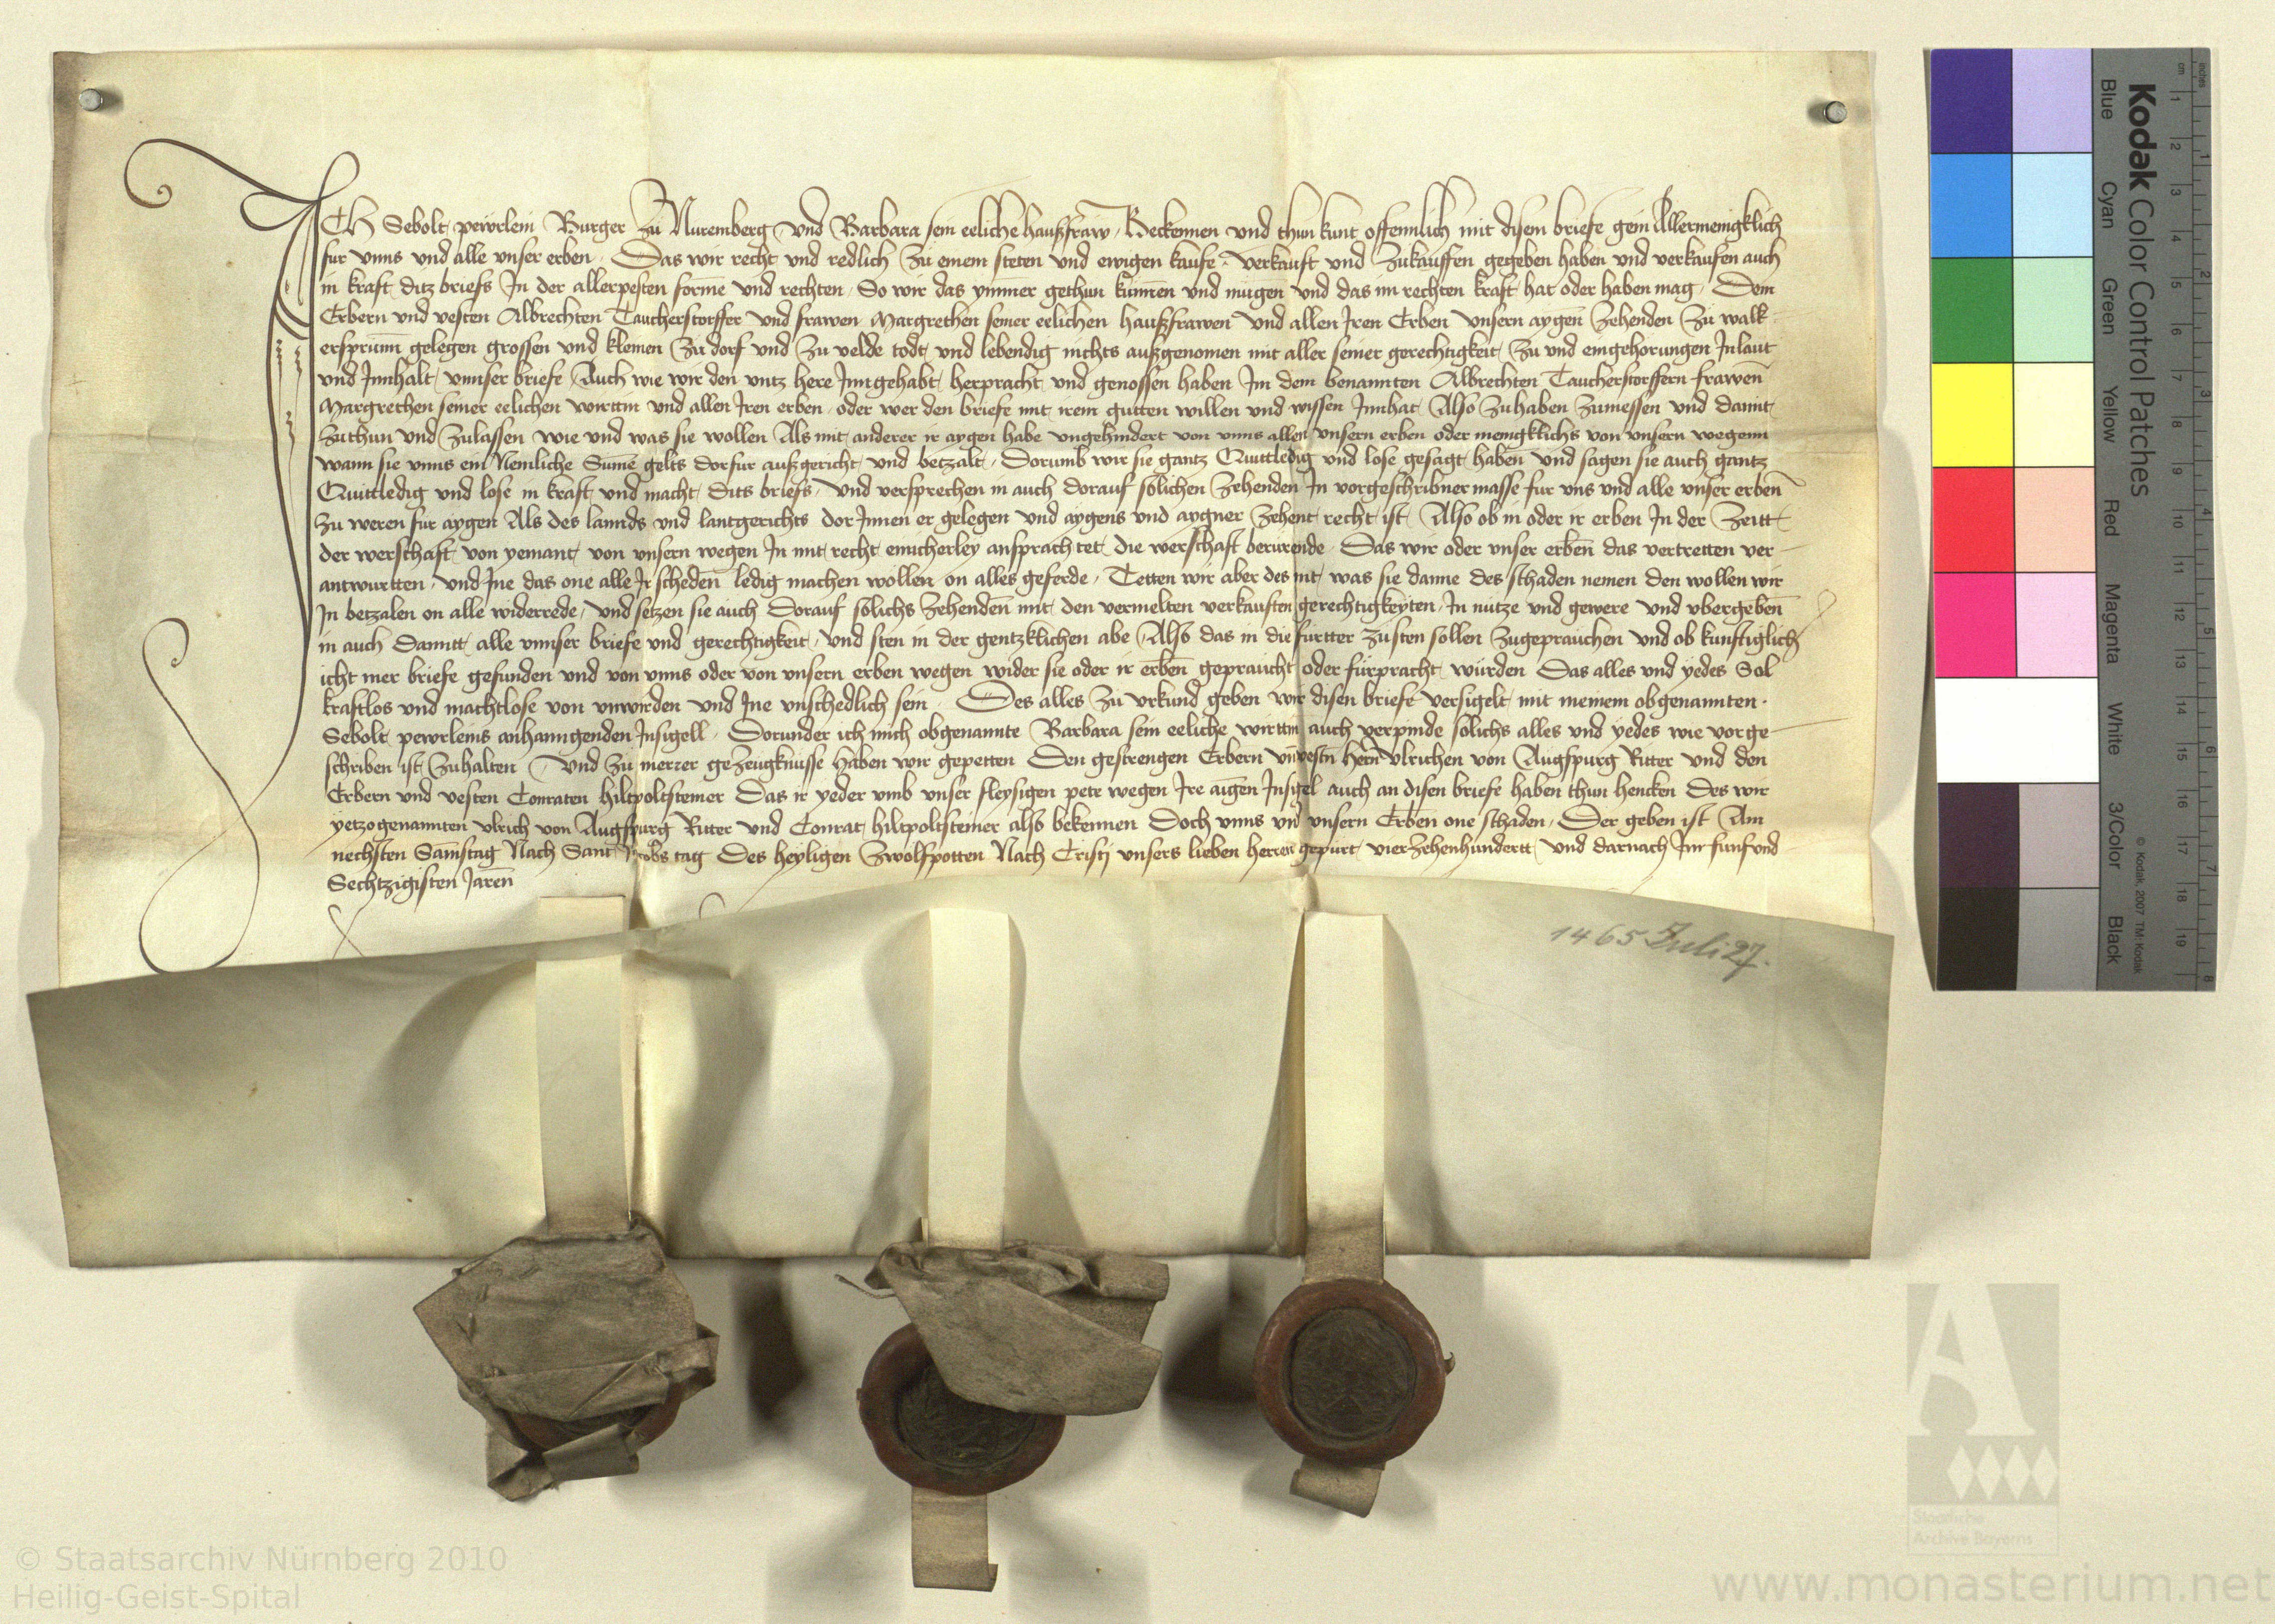 ICH Sebolt pewrlein Burger zu Nuremberg und Barbara sein eeliche haußfraw Bekennen und thun kunt offennlich mit disem briefe gein Allermenigklich
fur unns und alle unser erben Das wir recht und redlich zu einem steten und ewigen kaufe verkauft und zukauffen gegeben haben und verkaufen auch
in kraft ditz briefs In der allerpesten forme und rechten So wir das ymmer gethun kunnen und mugen und das im rechten kraft hat oder haben mag Dem
Erbern und vesten Albrechten Taucherstorffer und frawen Margrethen seiner eelichen haußfrawen und allen Iren Erben unsern aygen zehenden zu walk
ersprunn gelegen grossen und kleinen zu dorf und zu velde todt und lebendig nichts außgenomen mit aller seiner gerechtigkeit zu und eingehorungen In laut
und Innhalt unnser briefe Auch wie wir den untz here Inngehabt herpracht und genossen haben Im dem benannten Albrechten Taucherstorffern frawen
Margrethen seiner eelichen wirttin und allen Iren erben oder wer den briefe mit irem gutten willen und wissen Innhat Also zuhaben zuniessen und damit
zuthun und zulassen wie und was sie wollen Als mit anderer ir aygen habe ungehindert von unns allen unsern erben oder menigklichs von unsern wegenn
wann sie unns ein Nemliche Sume gelts dorfur außgericht und betzalt Dorumb wir sie gantz Quittledig und lose gesagt haben und sagen sie auch gantz
Quittledig und lose in kraft und macht dits briefs und versprechen in auch dorauf solichen zehenden In vorgeschribner masse fur uns und alle unser erben
zu weren fur aygen Als des lannds und lantgerichts dor Innen er gelegen und aygens und aygner zehent recht ist Also ob in oder ir erben In der Zeitt
der werschaft von yemant von unsern wegen In mit recht einicherley ansprach tet die werschaft berurende Das wir oder unser erben das vertretten ver
antwurtten und Ine das one alle Ir scheden ledig machen wollen on alles geferde Tetten wir aber des nit was sie danne des schaden nemen den wollen wir
In betzalen on alle widerrede und setzen sie auch dorauf solichs zehenden mit den vermelten verkauften gerechtigkeyten In nutze und gewere und ubergeben
in auch damitt alle unnser briefe und gerechtigkeit und sten in der gentzklichen abe Also das in die furtter zusten sollen zugeprauchen und ob kunftiglich
icht mer briefe gefunden und von unns oder von unsern erben wegen wider sie oder ir erben gepraucht oder furpracht wurden Das alles und yedes Sol
kraftlos und machtlose von unwirden und Ine unschedlich sein Des alles zu urkund geben wir disen briefe versigelt mit meinem obgenannten
Sebolt pewrleins anhanngenden Insigell Dorunder ich mich obgenannte Barbara sein eeliche wirttin auch verpinde solichs alles und yedes wie vorge
schriben ist zuhalten Und zu merrer gezeugknusse haben wir gepetten Den gestrengen Erbern und vestn hern Ulrichen von Augspurg Ritter und den
Erbern und vesten Conraten hiltpoltsteiner Das ir yeder umb unser fleysigen pete wegen Ire aigen Insigel auch an disen briefe haben thun hencken Des wir
yetzogenannten ulrich von Augspurg Ritter und Conrat hiltpoltsteiner also bekennen Doch unns und unsern Erben one schaden Der geben ist Am
nechsten Samstag Nach Sant Jacobs tag Des heyligen zwolfpotten Nach Cristi unsers lieben herren gepurt vierzehenhundertt und darnach Im funfund
Sechtzigisten Jaren
1465 Juli 27.
Kodak Color Control Patches
Blue Cyan Green Yellow Red Magenta White 3/Color Black
© Kodak, 2007 TM: Kodak
cm 1 2 3 4 5 6 7 8 9 10 11 12 13 14 15 16 17 18 19
inches 1 2 3 4 5 6 7 8
Staatliche
Archive Bayerns
© Staatsarchiv Nürnberg 2010
Heilig-Geist-Spital
www.monasterium.net